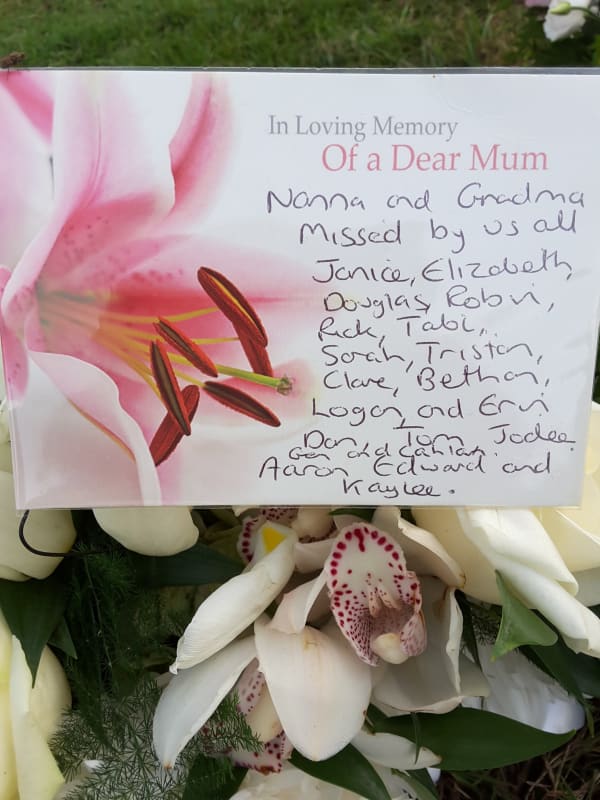 In Loving Memory
Of a Dear Mum
Nanna and Gradma
Missed by us all
Janice, Elizabeth,
Douglas, Robin,
Rick, Tabi,
Sarah, Tristan,
Clare, Bethan,
Logan, and Erin
Dan, Tom Jodee.
Gen and
Aaron Edward and
Kaylee.